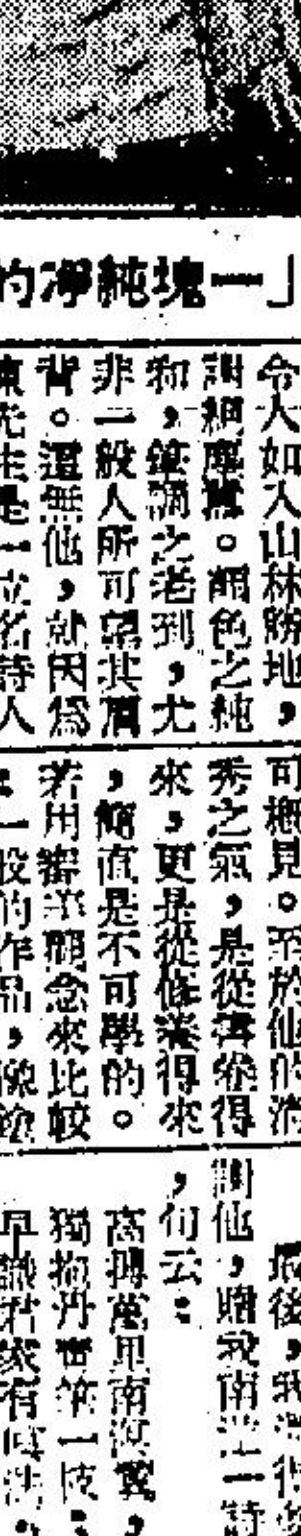 「一塊純淨的
令人如入山林勝地,
謝絕塵囂。調色之純
和,筆調之老到,尤
非一般人所可望其肩
背。這無他,就因為
陳先生是一位名詩人
可概見。至於他的清
秀之氣,是從書卷得
來,更是從修養得來
,簡直是不可學的。
若用審美觀念來比較
,一般的作品,像
最後,我
謝他,贈我南 一詩
,句云:
高摶萬里南溟翼,
獨抱丹青筆一枝;
早識君家有 法,